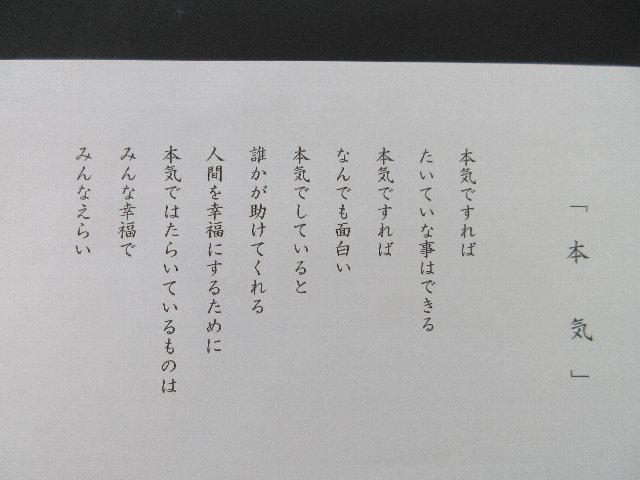 「本気」
本気ですれば
たいていな事はできる
本気ですれば
なんでも面白い
本気でしていると
誰かが助けてくれる
人間を幸福にするために
本気ではたらいているものは
みんな幸福で
みんなえらい